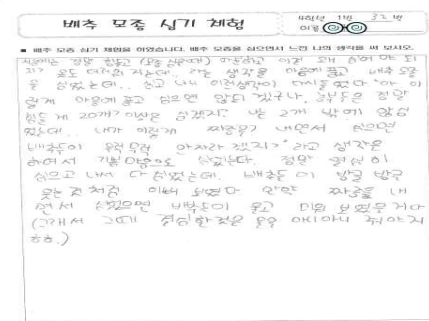 배추 모종 심기 체험
4학년 1반 32번
이름
■ 배추 모종 심기 체험을 하였습니다. 배추 모종을 심으면서 느낀 나의 생각을 써 보시오.
처음에는 정말 힘들고 이걸 왜 심어야 되
지? 옷도 더러워지는데.. 라는 생각을 마음에 품고 배추 모종
을 심었는데.. 심고 나니 이런 생각이 다시 들었다 "아 이
렇게 마음에 품고 심으면 안되겠구나. 농부들은 정말
힘들게 20개 이상은 심겠지? 난 2개 밖에 안심
었는데.. 내가 이렇게 짜증을 내면서 심으면
배추들이 무럭무럭 안자라겠지?" 라고 생각을
하여서 기쁜 마음으로 심었다. 정말 열심히
심으고 나서 다 심었는데. 배추들이 방글 방글
웃는 것처럼 이뻐 보였다 만약 짜증을 내
면서 심었으면 배추들이 울고 미워 보였을 거다
(그래서 그때 결심한 것은 물을 매일마다 줘야지
ㅎㅎ.)